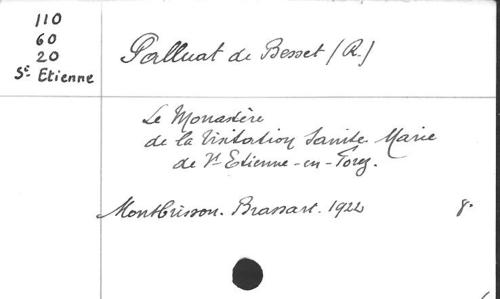 110
60
20
St Etienne
Palluat de Besset (R.)
Le Monastère
de la Visitation Sainte Marie
de St Etienne-en-Forez.
Montbrisson. Brassart. 1922 8°